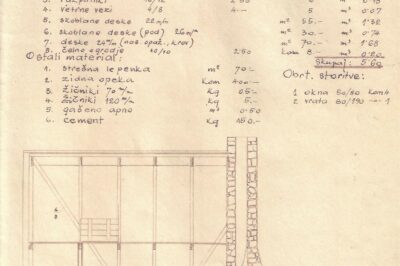 4. vetrne vezi 4/8 4 m³ 0.07
5. skoblane deske 22 m/m m² 55.- m³ 1.32
6. skoblane deske (pod) 26 m/m m² 30.- m³ 0.74
7. deske 24 m/m (nos. opaž, krov) m² 70.- m³ 1.68
8. 10/10 2.50 Kom 8.- m³ 0.20
Skupaj: 5.60
Ostali material:
1. strešna lepenka m² 70.-
2. zidna opeka kom 400.-
3. žičniki 70 m/m kg 05.-
4. žičniki 120 m/m kg 5.-
5. gašeno apno m³ 0.50
6. cement kg 150.-
Obrt. storitve:
1 okna 50/80 kom 4
2 vrata 80/190 -"- 1